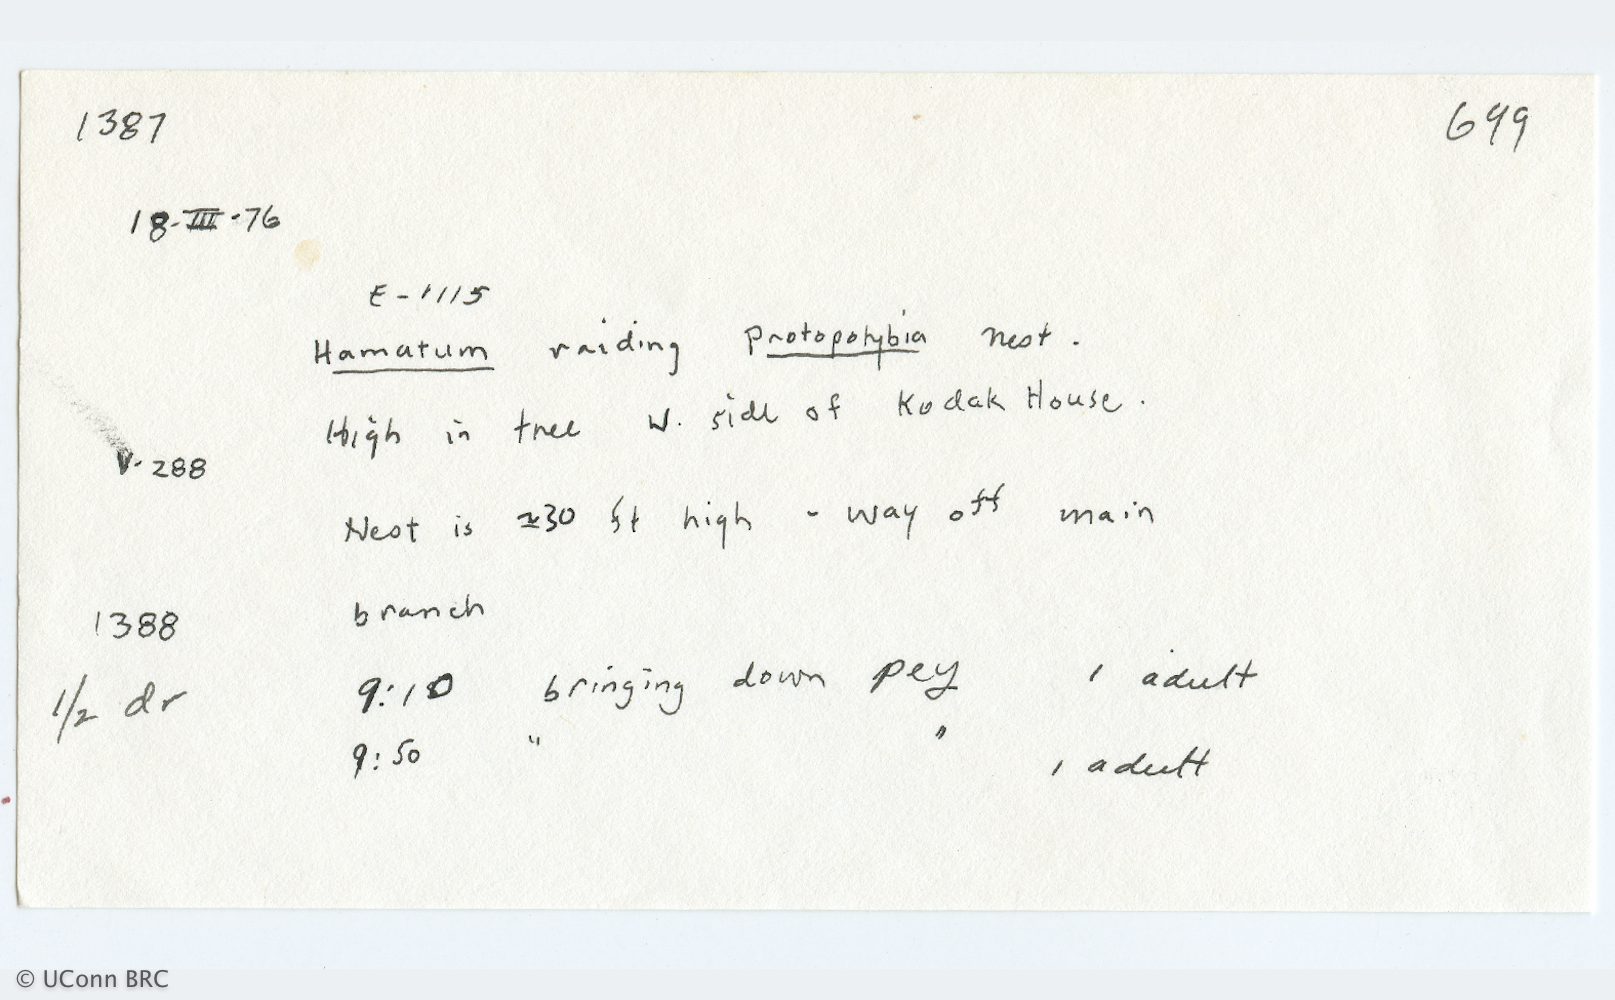 1387 699
18-III-76
E-1115
Hamatum raiding Protopolybia nest.
High in tree W. side of Kodak House.
V-288
Nest is ≃30 ft high - way off main
branch
1388
1/2 dr
9:10 bringing down pey 1 adult
9:50 " " 1 adult
© UConn BRC